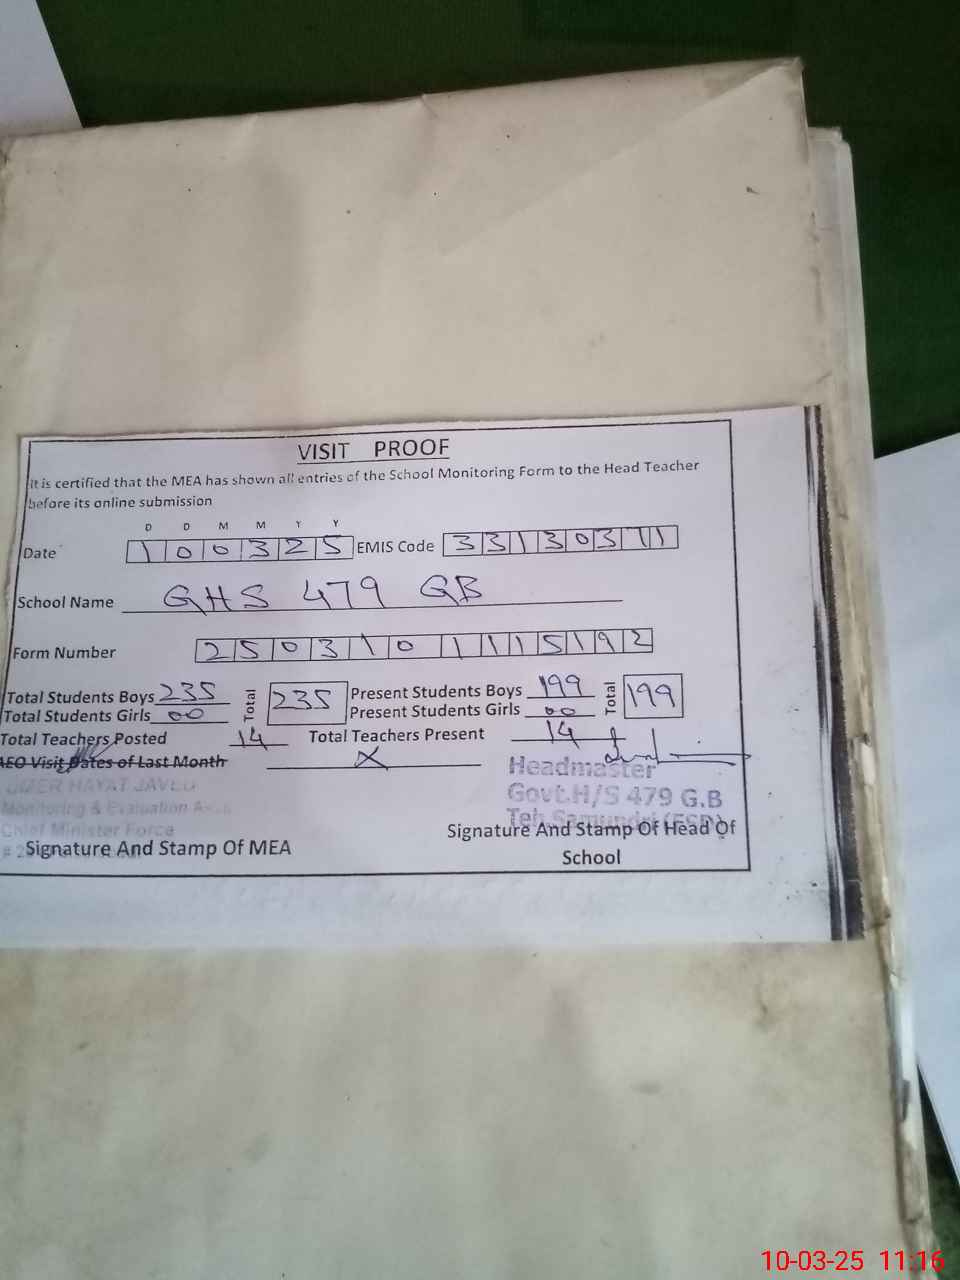 VISIT PROOF
It is certified that the MEA has shown all entries of the School Monitoring Form to the Head Teacher
before its online submission
D D M M Y Y
Date 100325 EMIS Code 33130371
School Name GHS 479 GB
Form Number 250310111592
Total Students Boys 235 Total 235 Present Students Boys 199 Total 199
Total Students Girls 00 Present Students Girls 00
Total Teachers Posted 14 Total Teachers Present 14
AEO Visit Dates of Last Month X
Headmaster
HAYAT JAVED
Govt.H/S 479 G.B
Monitoring & Evaluation
Teh.Samundri (FSD)
Chief Minister Force
Signature And Stamp Of MEA
Signature And Stamp Of Head Of
School
10-03-25 11:16